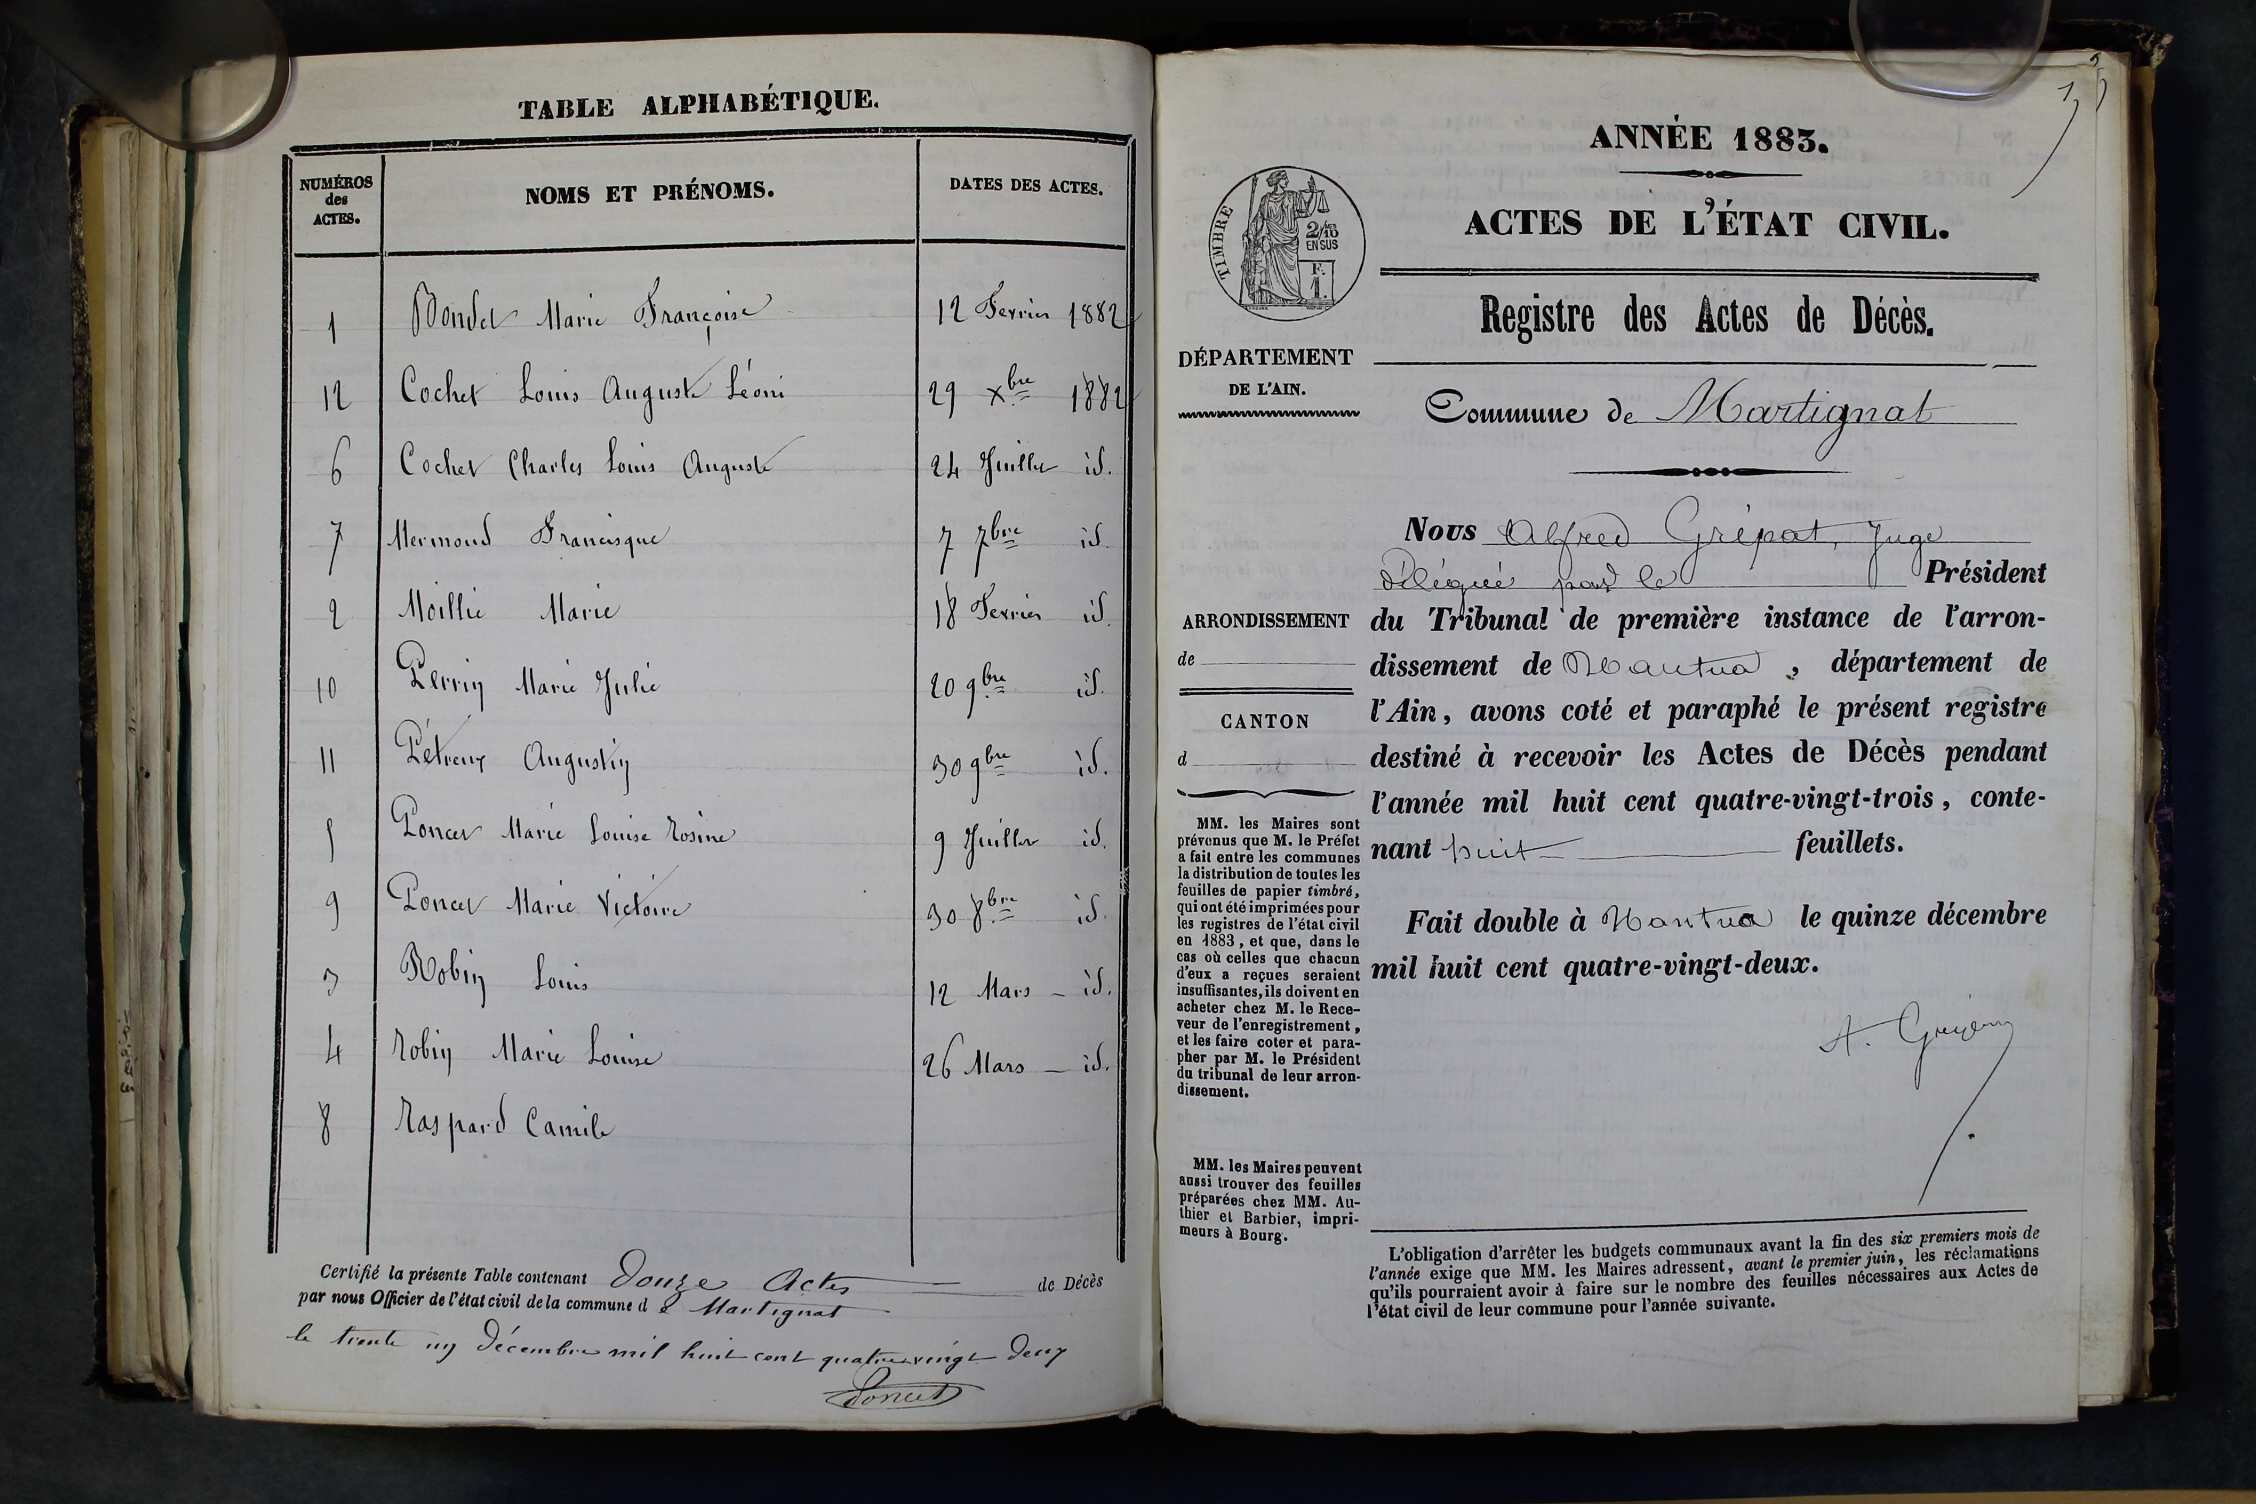 TABLE ALPHABÉTIQUE.
NUMÉROS des ACTES. NOMS ET PRÉNOMS. DATES DES ACTES.
1 Bondet Marie Françoise 12 Fevrier 1882
12 Cochet Louis Auguste Léoni 29 Xbre 1882
6 Cochet Charles Louis Auguste 24 Juillet id.
7 Mermond Francisque 7 7bre id.
2 Moillié Marie 18 Fevrier id.
10 Perrin Marie Julie 20 9bre id.
11 Augustin 30 9bre id.
5 Poncet Marie Louise Rosine 9 Juillet id.
9 Poncet Marie Victoire 30 8bre id.
3 Robin Louis 12 Mars – id.
4 Robin Marie Louise 26 Mars – id.
8 Raspard Camile
Certifié la présente Table contenant Douze Actes de Décès
par nous Officier de l'état civil de la commune d e Martignat
le trente un Décembre mil huit cent quatre vingt deux
Poncet
ANNÉE 1883.
ACTES DE L'ÉTAT CIVIL.
TIMBRE
2/10 EN SUS
F. 1.
Registre des Actes de Décès.
DÉPARTEMENT
DE L'AIN.
Commune de Martignat
Nous Alfred Grépat, Juge
Délégué par le Président
du Tribunal de première instance de l'arron-
dissement de Nantua, département de
l'Ain, avons coté et paraphé le présent registre
destiné à recevoir les Actes de Décès pendant
l'année mil huit cent quatre-vingt-trois, conte-
nant huit feuillets.
Fait double à Nantua le quinze décembre
mil huit cent quatre-vingt-deux.
ARRONDISSEMENT
de
CANTON
d
MM. les Maires sont
prévenus que M. le Préfet
a fait entre les communes
la distribution de toutes les
feuilles de papier timbré,
qui ont été imprimées pour
les registres de l'état civil
en 1883, et que, dans le
cas où celles que chacun
d'eux a reçues seraient
insuffisantes, ils doivent en
acheter chez M. le Rece-
veur de l'enregistrement,
et les faire coter et para-
pher par M. le Président
du tribunal de leur arron-
dissement.
MM. les Maires peuvent
aussi trouver des feuilles
préparées chez MM. Au-
thier et Barbier, impri-
meurs à Bourg.
L'obligation d'arrêter les budgets communaux avant la fin des six premiers mois de
l'année exige que MM. les Maires adressent, avant le premier juin, les réclamations
qu'ils pourraient avoir à faire sur le nombre des feuilles nécessaires aux Actes de
l'état civil de leur commune pour l'année suivante.